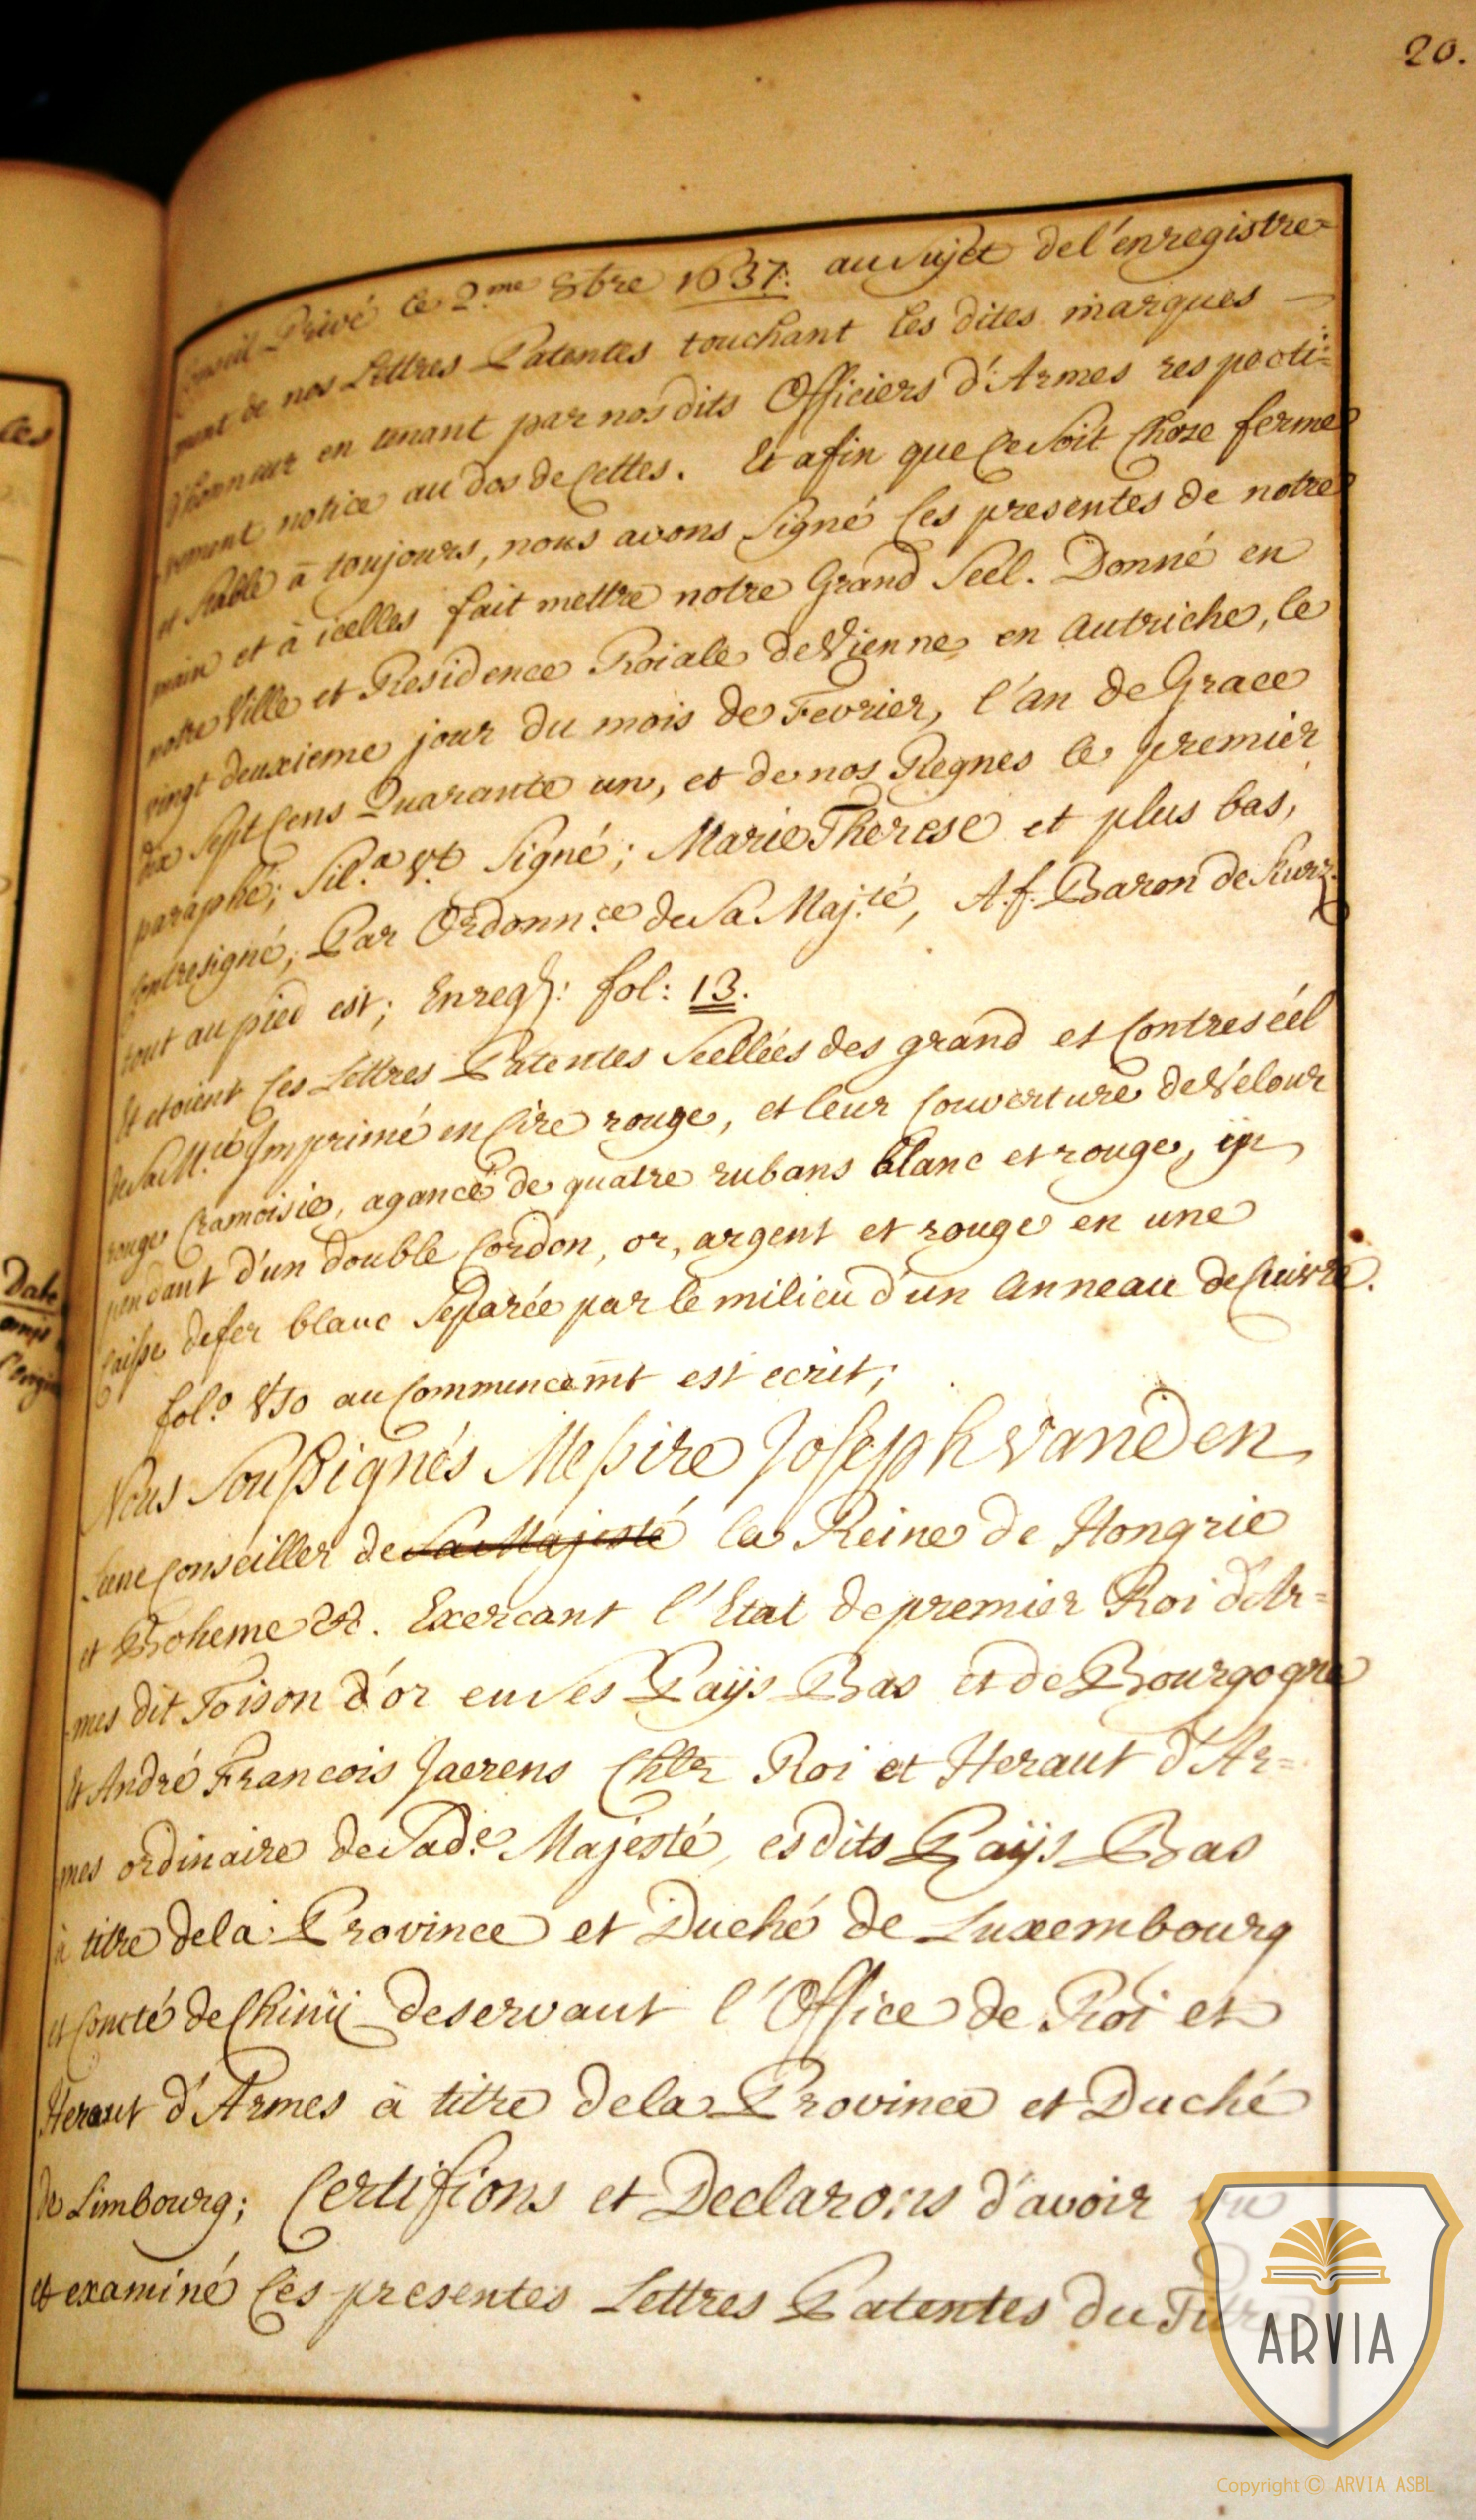 20.
Conseil Privé le 2.me 8bre 1637. au sujet de l'enregistre=
ment de nos Lettres Patentes touchant les dites marques
d'honneur en tenant par nos dits Officiers d'Armes respecti=
vement notice au dos de cettes. Et afin que ce soit chose ferme
et stable à toujours, nous avons signé ces presentes de notre
main et à icelles fait mettre notre Grand Seel. Donné en
notre Ville et Residence Roiale de Vienne en Autriche, le
vingt deuxieme jour du mois de Fevrier, l'an de Grace
dix Sept Cens Quarante un, et de nos Regnes le premier
paraphé; Sil.a vt Signé; Marie Therese et plus bas,
Contresigné; Par Ordonn.ce de Sa Maj.té, A.f. Baron de Kurz
tout au pied est; Enreg: fol: 13.
Et etoient ces Lettres Patentes Scellées des grand et Contreséel
de Sa M.té Imprimé en Cire rouge, et leur Couverture de Vélour
rouge Cramoisie, agancé de quatre rubans blanc et rouge, ij
pendant d'un double Cordon, or, argent et rouge en une
Caisse de fer blanc Separée par le milieu d'un anneau de Cuivre.
fol.o Vso au Commencemt est ecrit;
Nous Soussignés Messire Joseph van den
Leene Conseiller de Sa Majesté la Reine de Hongrie
et Boheme &c. Exercant l'Etat de premier Roi d'Ar=
mes dit Toison d'or en ses Païjs Bas et de Bourgogne
Et André Francois Jaerens Chlr Roi et Heraut d'Ar=
mes ordinaire de Sad.e Majesté, es dits Païjs Bas
à titre de la Province et Duché de Luxembourg
et Comté de Chinij deservant l'Office de Roi et
Heraut d'Armes à titre de la Province et Duché
de Limbourg; Certifions et Declarons d'avoir vu
et examiné ces presentes Lettres Patentes du Titre
Date
ARVIA
Copyright © ARVIA ASBL